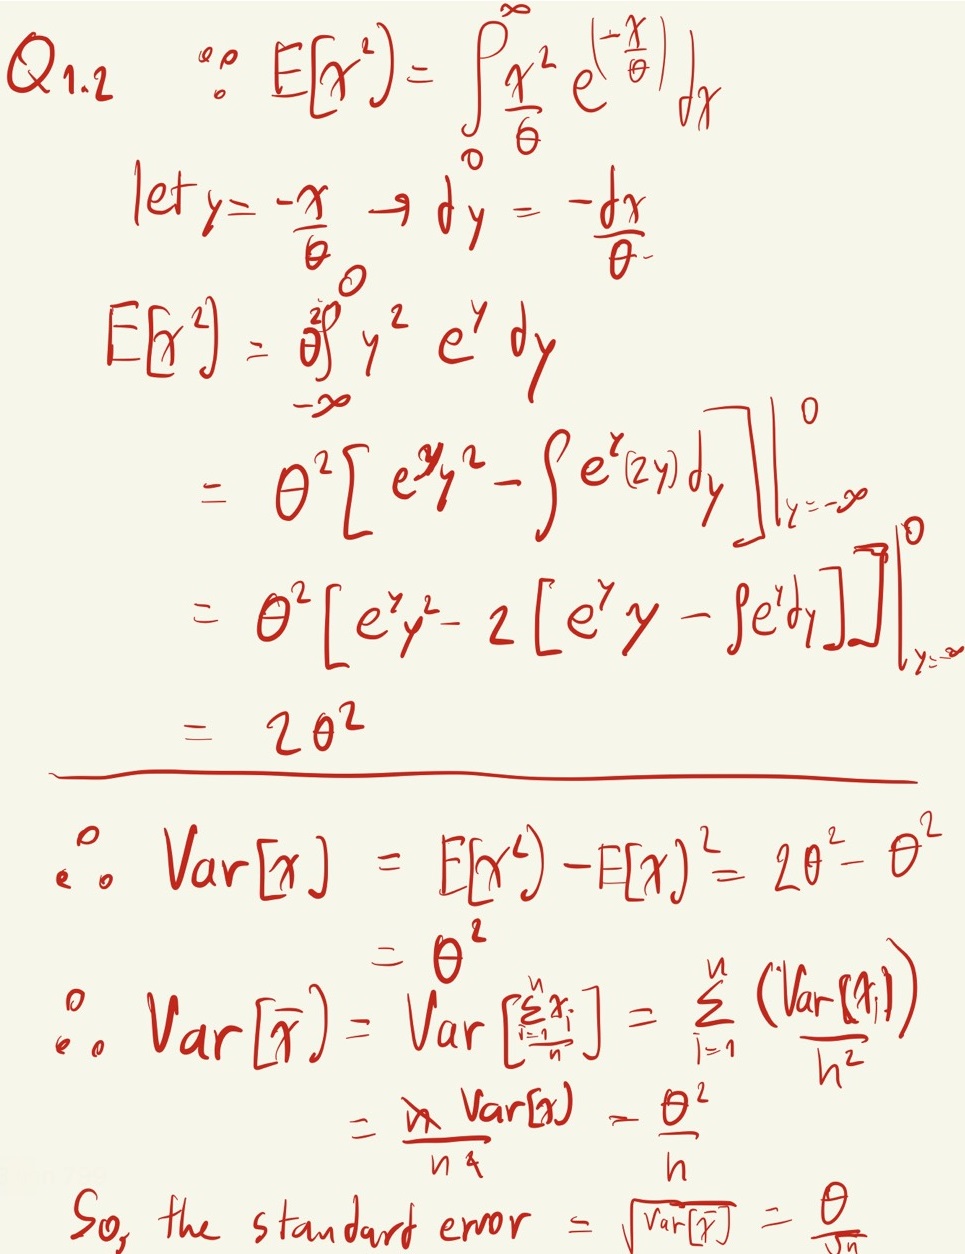 Q1.2 ∵ E[x²] = ∫₀^∞ x²/θ e^(-x/θ) dx
let y = -x/θ → dy = -dx/θ
E[x²] = θ² ∫_{-∞}^0 y² e^y dy
= θ² [ e^y y² - ∫ e^y (2y) dy ] |_{y=-∞}^0
= θ² [ e^y y² - 2 [ e^y y - ∫ e^y dy ] ] |_{y=-∞}^0
= 2θ²
∴ Var[x] = E[x²] - E[x]² = 2θ² - θ²
= θ²
∴ Var[x̄] = Var [ Σ_{i=1}^n x_i / n ] = Σ_{i=1}^n (Var[x_i]) / n²
= n Var[x] / n² = θ²/n
So, the standard error = √Var[x̄] = θ/√n